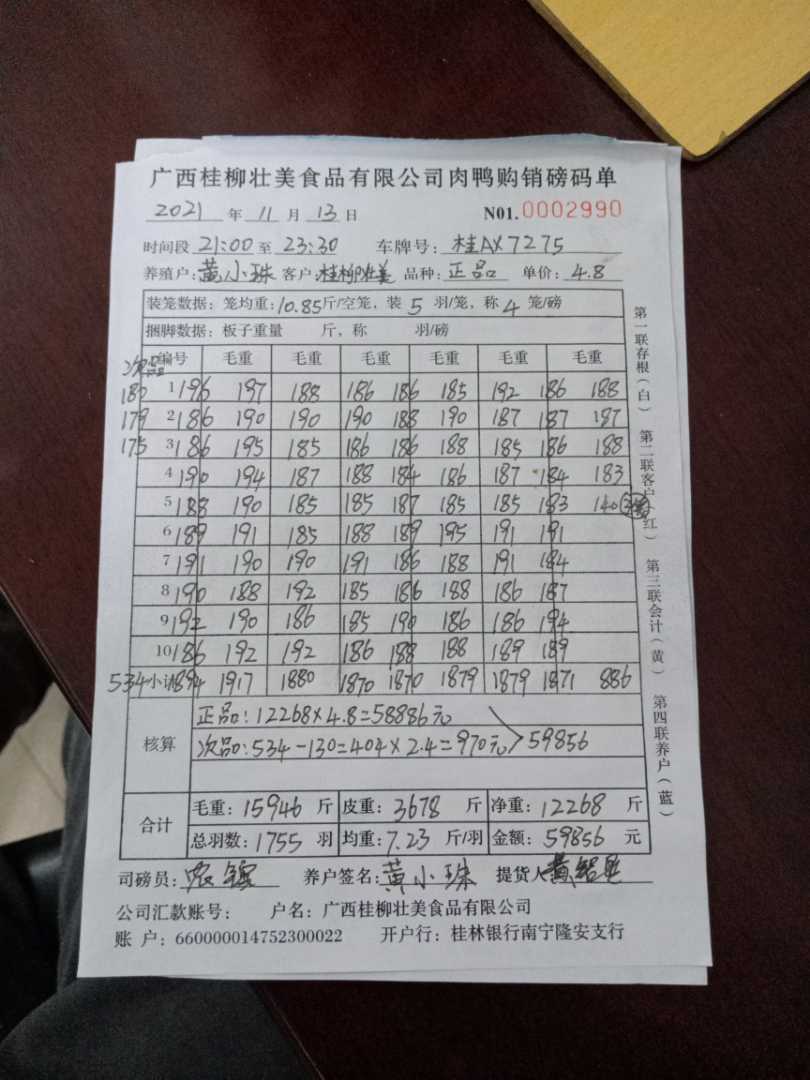 广西桂柳壮美食品有限公司肉鸭购销磅码单
2021 年 11 月 13 日 N01.0002990
时间段 21:00 至 23:30 车牌号: 桂AX7275
养殖户: 黄小珠 客户: 桂柳壮美 品种: 正品 单价: 4.8
装笼数据: 笼均重: 10.85 斤/空笼, 装 5 羽/笼, 称 4 笼/磅
捆脚数据: 板子重量 斤, 称 羽/磅
次品 编号 毛重 毛重 毛重 毛重 毛重 毛重
180 1 196 197 188 186 186 185 192 186 188
179 2 186 190 190 190 188 190 187 187 187
175 3 186 195 185 186 186 188 185 186 188
4 190 194 187 188 184 186 187 184 183
5 188 190 185 185 187 185 185 183 140
6 189 191 185 188 189 195 191 191
7 191 190 190 191 186 188 191 184
8 190 188 192 185 186 188 186 187
9 192 190 186 185 190 186 186 194
10 186 192 192 186 188 188 189 189
534 小计 1894 1917 1880 1870 1870 1879 1879 1871 886
核算
正品: 12268×4.8=58886元
次品: 534-130=404×2.4=970元 59856
合计
毛重: 15946 斤 皮重: 3678 斤 净重: 12268 斤
总羽数: 1755 羽 均重: 7.23 斤/羽 金额: 59856 元
司磅员: 养户签名: 黄小珠 提货人
公司汇款账号: 户名: 广西桂柳壮美食品有限公司
账 户: 660000014752300022 开户行: 桂林银行南宁隆安支行
第一联存根(白) 第二联客户(红) 第三联会计(黄) 第四联养户(蓝)